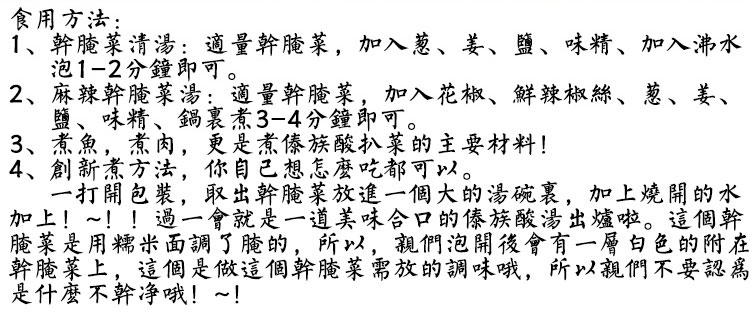 食用方法：
1、幹腌菜清湯：適量幹腌菜，加入葱、姜、鹽、味精、加入沸水
泡1-2分鐘即可。
2、麻辣幹腌菜湯：適量幹腌菜，加入花椒、鮮辣椒絲、葱、姜、
鹽、味精、鍋裏煮3-4分鐘即可。
3、煮魚，煮肉，更是煮傣族酸扒菜的主要材料！
4、創新煮方法，你自己想怎麼吃都可以。
一打開包裝，取出幹腌菜放進一個大的湯碗裏，加上燒開的水
加上！~！！過一會就是一道美味合口的傣族酸湯出爐啦。這個幹
腌菜是用糯米面調了腌的，所以，親們泡開後會有一層白色的附在
幹腌菜上，這個是做這個幹腌菜需放的調味哦，所以親們不要認爲
是什麼不幹净哦！~！